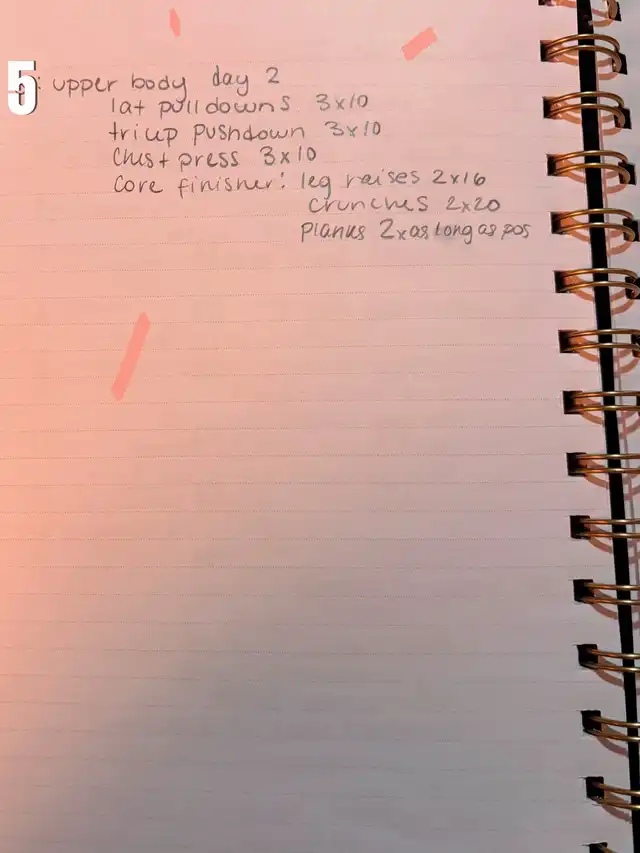 5: upper body day 2
lat pulldowns 3x10
tricep pushdown 3x10
Chest press 3x10
Core finisher: leg raises 2x16
crunches 2x20
planks 2x as long as pos